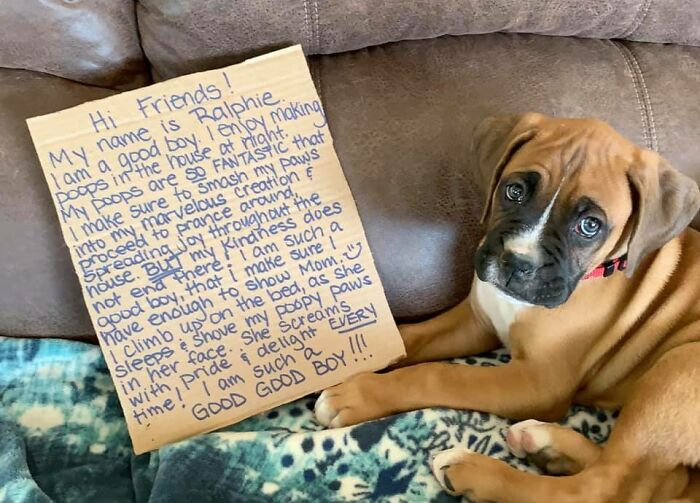 Hi Friends!
My name is Ralphie.
I am a good boy. I enjoy making
poops in the house at night.
My poops are SO FANTASTIC that
I make sure to smash my paws
into my marvelous creation &
proceed to prance around,
spreading joy throughout the
house. BUT my kindness does
not end there! I am such a
good boy, that i make sure I
have enough to show Mom. :)
I climb up on the bed, as she
sleeps & shove my poopy paws
in her face. She screams
with pride & delight EVERY
time! I am such a
GOOD GOOD BOY!!!